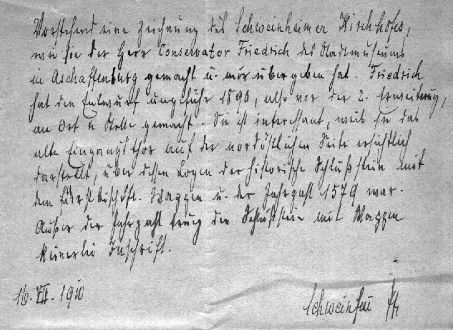 Vorstehend eine Zeichnung des Schweinheimer Kirchhofes,
wie sie der Herr Conservator Friedrich des Stadtmuseums
in Aschaffenburg gemacht u. mir übergeben hat. Friedrich
hat den Entwurf ungefähr 1890, also vor der 2. Erweiterung,
an Ort u. Stelle gemacht. Sie ist interessant, weil sie das
alte Eingangsthor auf der nordöstlichen Seite ersichtlich
darstellt, über dessen Bogen der historische Schlußstein mit
dem Fürstbischöfl. Wappen u. der Jahrzahl 1579 war.
Außer der Jahrzahl trug der Schlußstein mit Wappen
keinerlei Inschrift.
16. VII. 1910